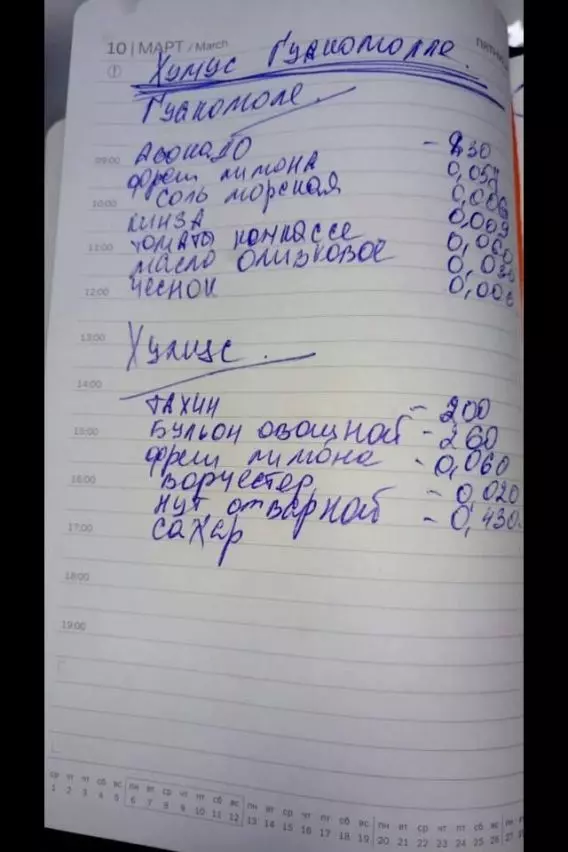 10 | МАРТ / March
ПЯТНИ
1
Хумус Гуакомолле.
Гуакомоле
09:00
Авокадо - 830
фреш лимона 0,054
10:00
соль морская 0,006
кинза 0,009
11:00
томаты конкассе 0,060
масло оливковое 0,030
12:00
чеснок 0,006
13:00
Хумус.
14:00
тахин - 200
15:00
бульон овощной - 260
фреш лимона - 0,060
16:00
ворчестер - 0,020
нут отварной - 0,430
17:00
сахар
18:00
19:00
ср чт пт сб вс пн вт ср чт пт сб вс пн вт ср чт пт сб вс пн вт ср чт пт сб вс пн вт
1 2 3 4 5 6 7 8 9 10 11 12 13 14 15 16 17 18 19 20 21 22 23 24 25 26 27 28